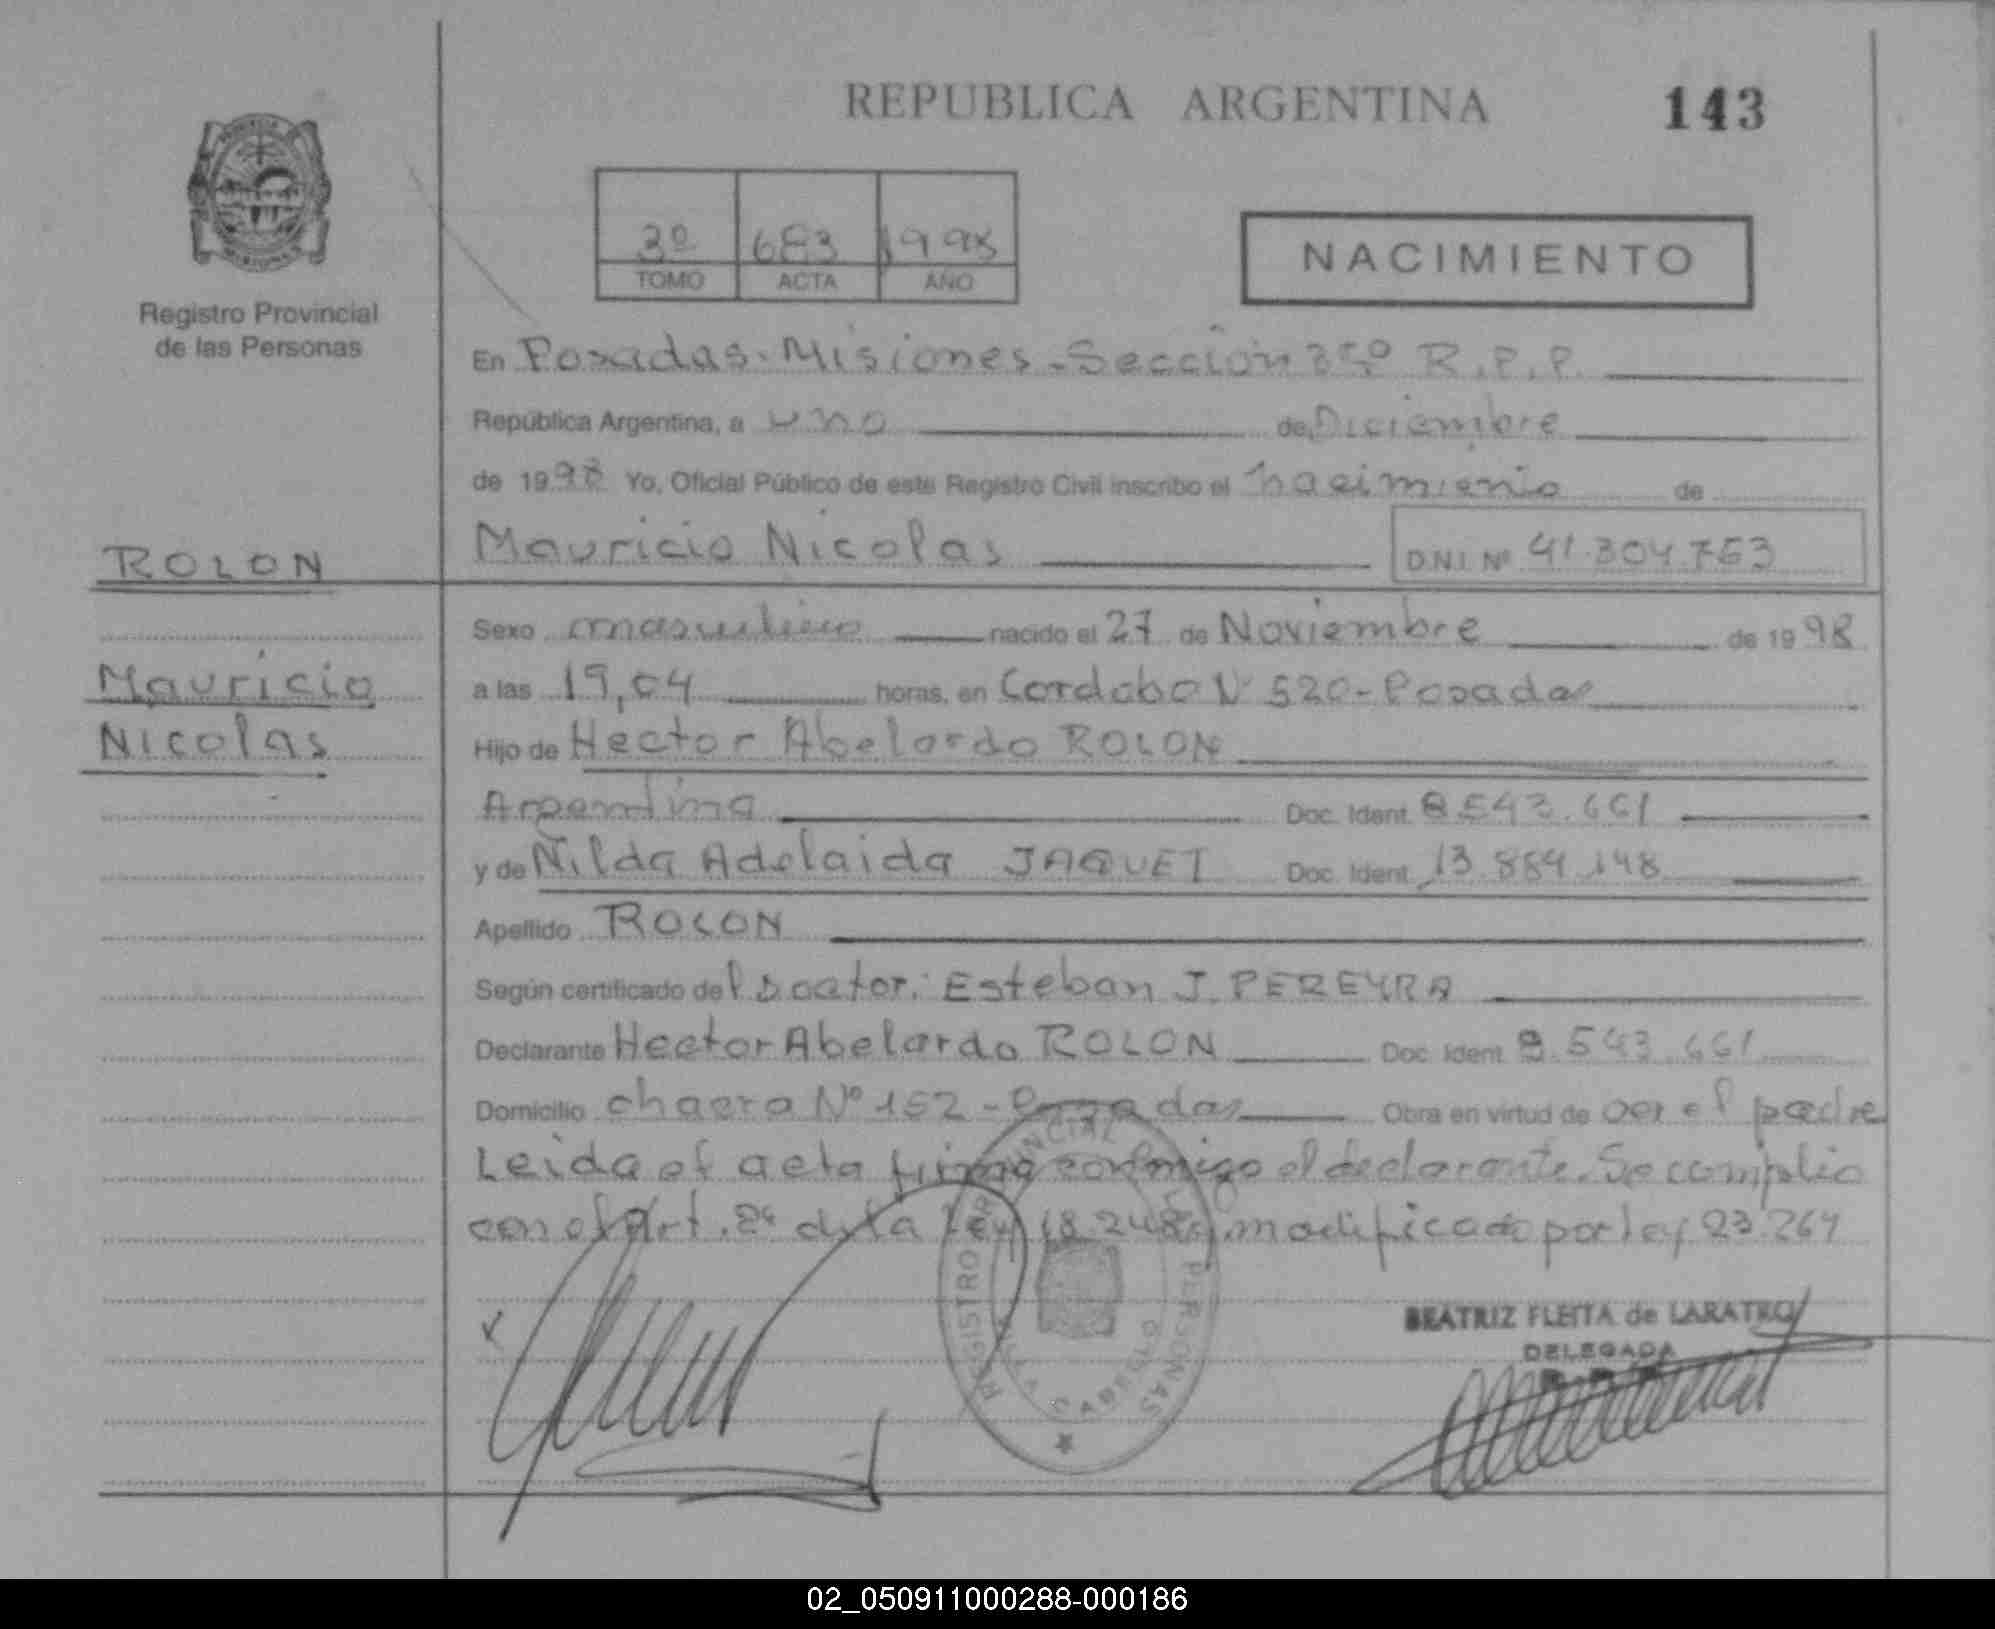 REPUBLICA ARGENTINA
143
3º 683 1998
TOMO ACTA AÑO
NACIMIENTO
Registro Provincial
de las Personas
En Posadas - Misiones - Sección 35º R.P.P.
República Argentina, a uno de Diciembre
de 1998 Yo, Oficial Público de este Registro Civil inscribo el nacimiento de
ROLON
Mauricio Nicolas
D.N.I. Nº 41.304.763
Sexo masculino nacido el 27 de Noviembre de 1998
Mauricio
a las 19,04 horas, en Cordoba Nº 520 - Posadas
Nicolas
Hijo de Hector Abelardo ROLON
Argentina Doc. Ident. 8.543.661
y de Nilda Adelaida JAQUET Doc. Ident. 13.884.148
Apellido ROLON
Según certificado del Doctor: Esteban J. PEREYRA
Declarante Hector Abelardo ROLON Doc. Ident. 8.543.661
Domicilio chacra Nº 152 - Posadas Obra en virtud de ser el padre
Leida el acta firma conmigo el declarante. Se complio
con el Art. 2º de la Ley 18.248, modificado por ley 23.264
REGISTRO PROVINCIAL DE LAS PERSONAS
VILLA CABELLO
BEATRIZ FLEITA de LARATRO
DELEGADA
02_050911000288-000186